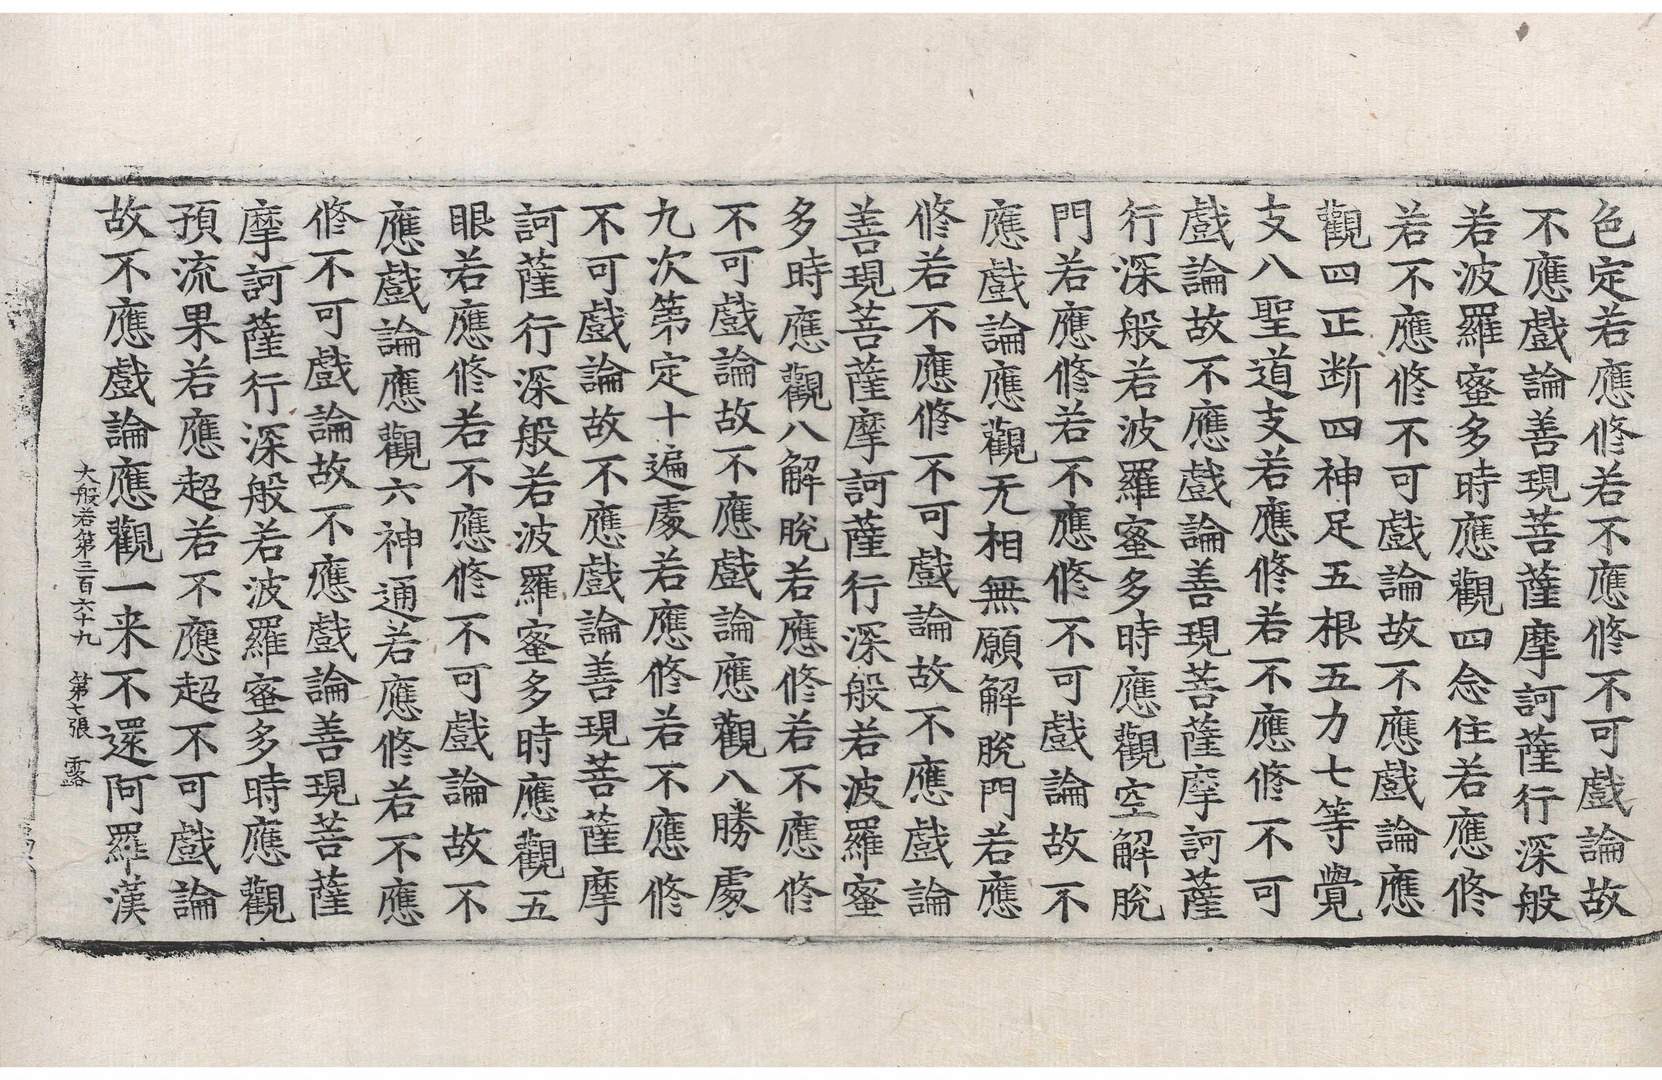 色定若應修若不應修不可戲論故
不應戲論善現菩薩摩訶薩行深般
若波羅蜜多時應觀四念住若應修
若不應修不可戲論故不應戲論應
觀四正断四神足五根五力七等覺
支八聖道支若應修若不應修不可
戲論故不應戲論善現菩薩摩訶薩
行深般若波羅蜜多時應觀空解脫
門若應修若不應修不可戲論故不
應戲論應觀无相無願解脫門若應
修若不應修不可戲論故不應戲論
善現菩薩摩訶薩行深般若波羅蜜
多時應觀八解脫若應修若不應修
不可戲論故不應戲論應觀八勝處
九次第定十遍處若應修若不應修
不可戲論故不應戲論善現菩薩摩
訶薩行深般若波羅蜜多時應觀五
眼若應修若不應修不可戲論故不
應戲論應觀六神通若應修若不應
修不可戲論故不應戲論善現菩薩
摩訶薩行深般若波羅蜜多時應觀
預流果若應超若不應超不可戲論
故不應戲論應觀一来不還阿羅漢
大般若第三百六十九　第七張　露